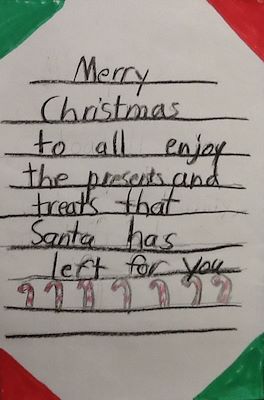 Merry
Christmas
to all enjoy
the presents and
treats that
Santa has
left for you